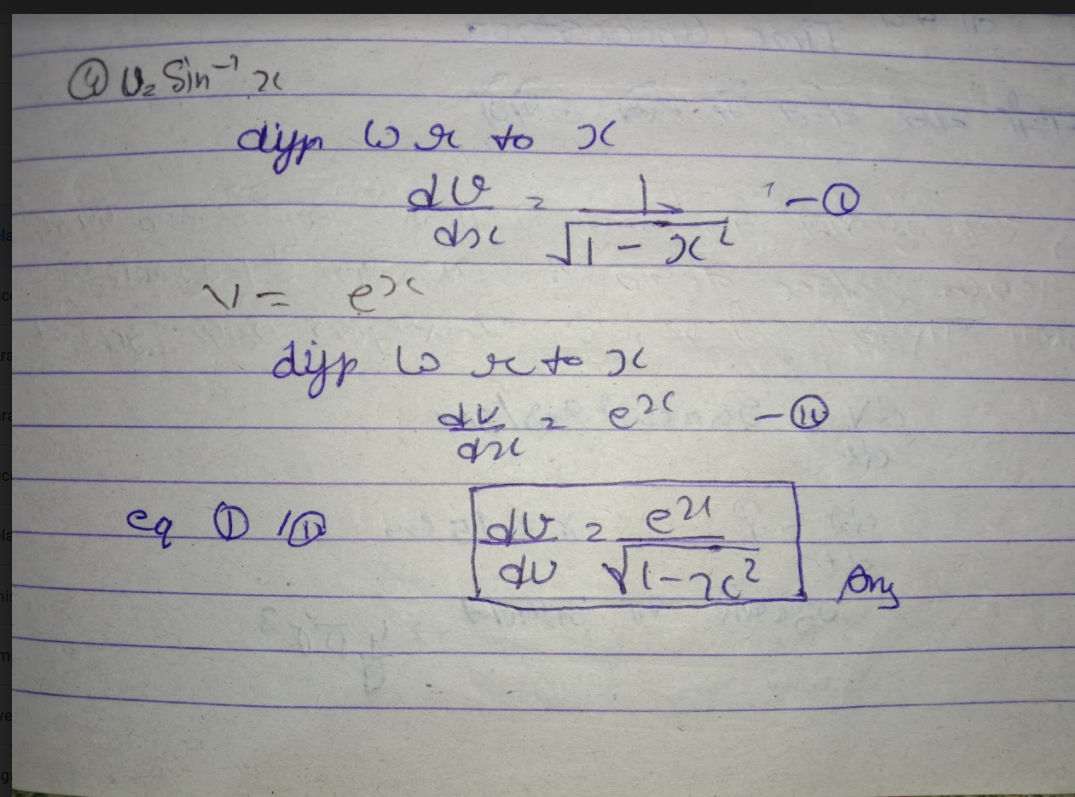 ④ U= Sin⁻¹ x
diff w r to x
dU/dx = 1/√(1 - x²) - ①
V = eˣ
diff w r to x
dv/dx = eˣ - ⑪
eq ① / ⑪ dU/dv = eˣ/√(1-x²) Ans